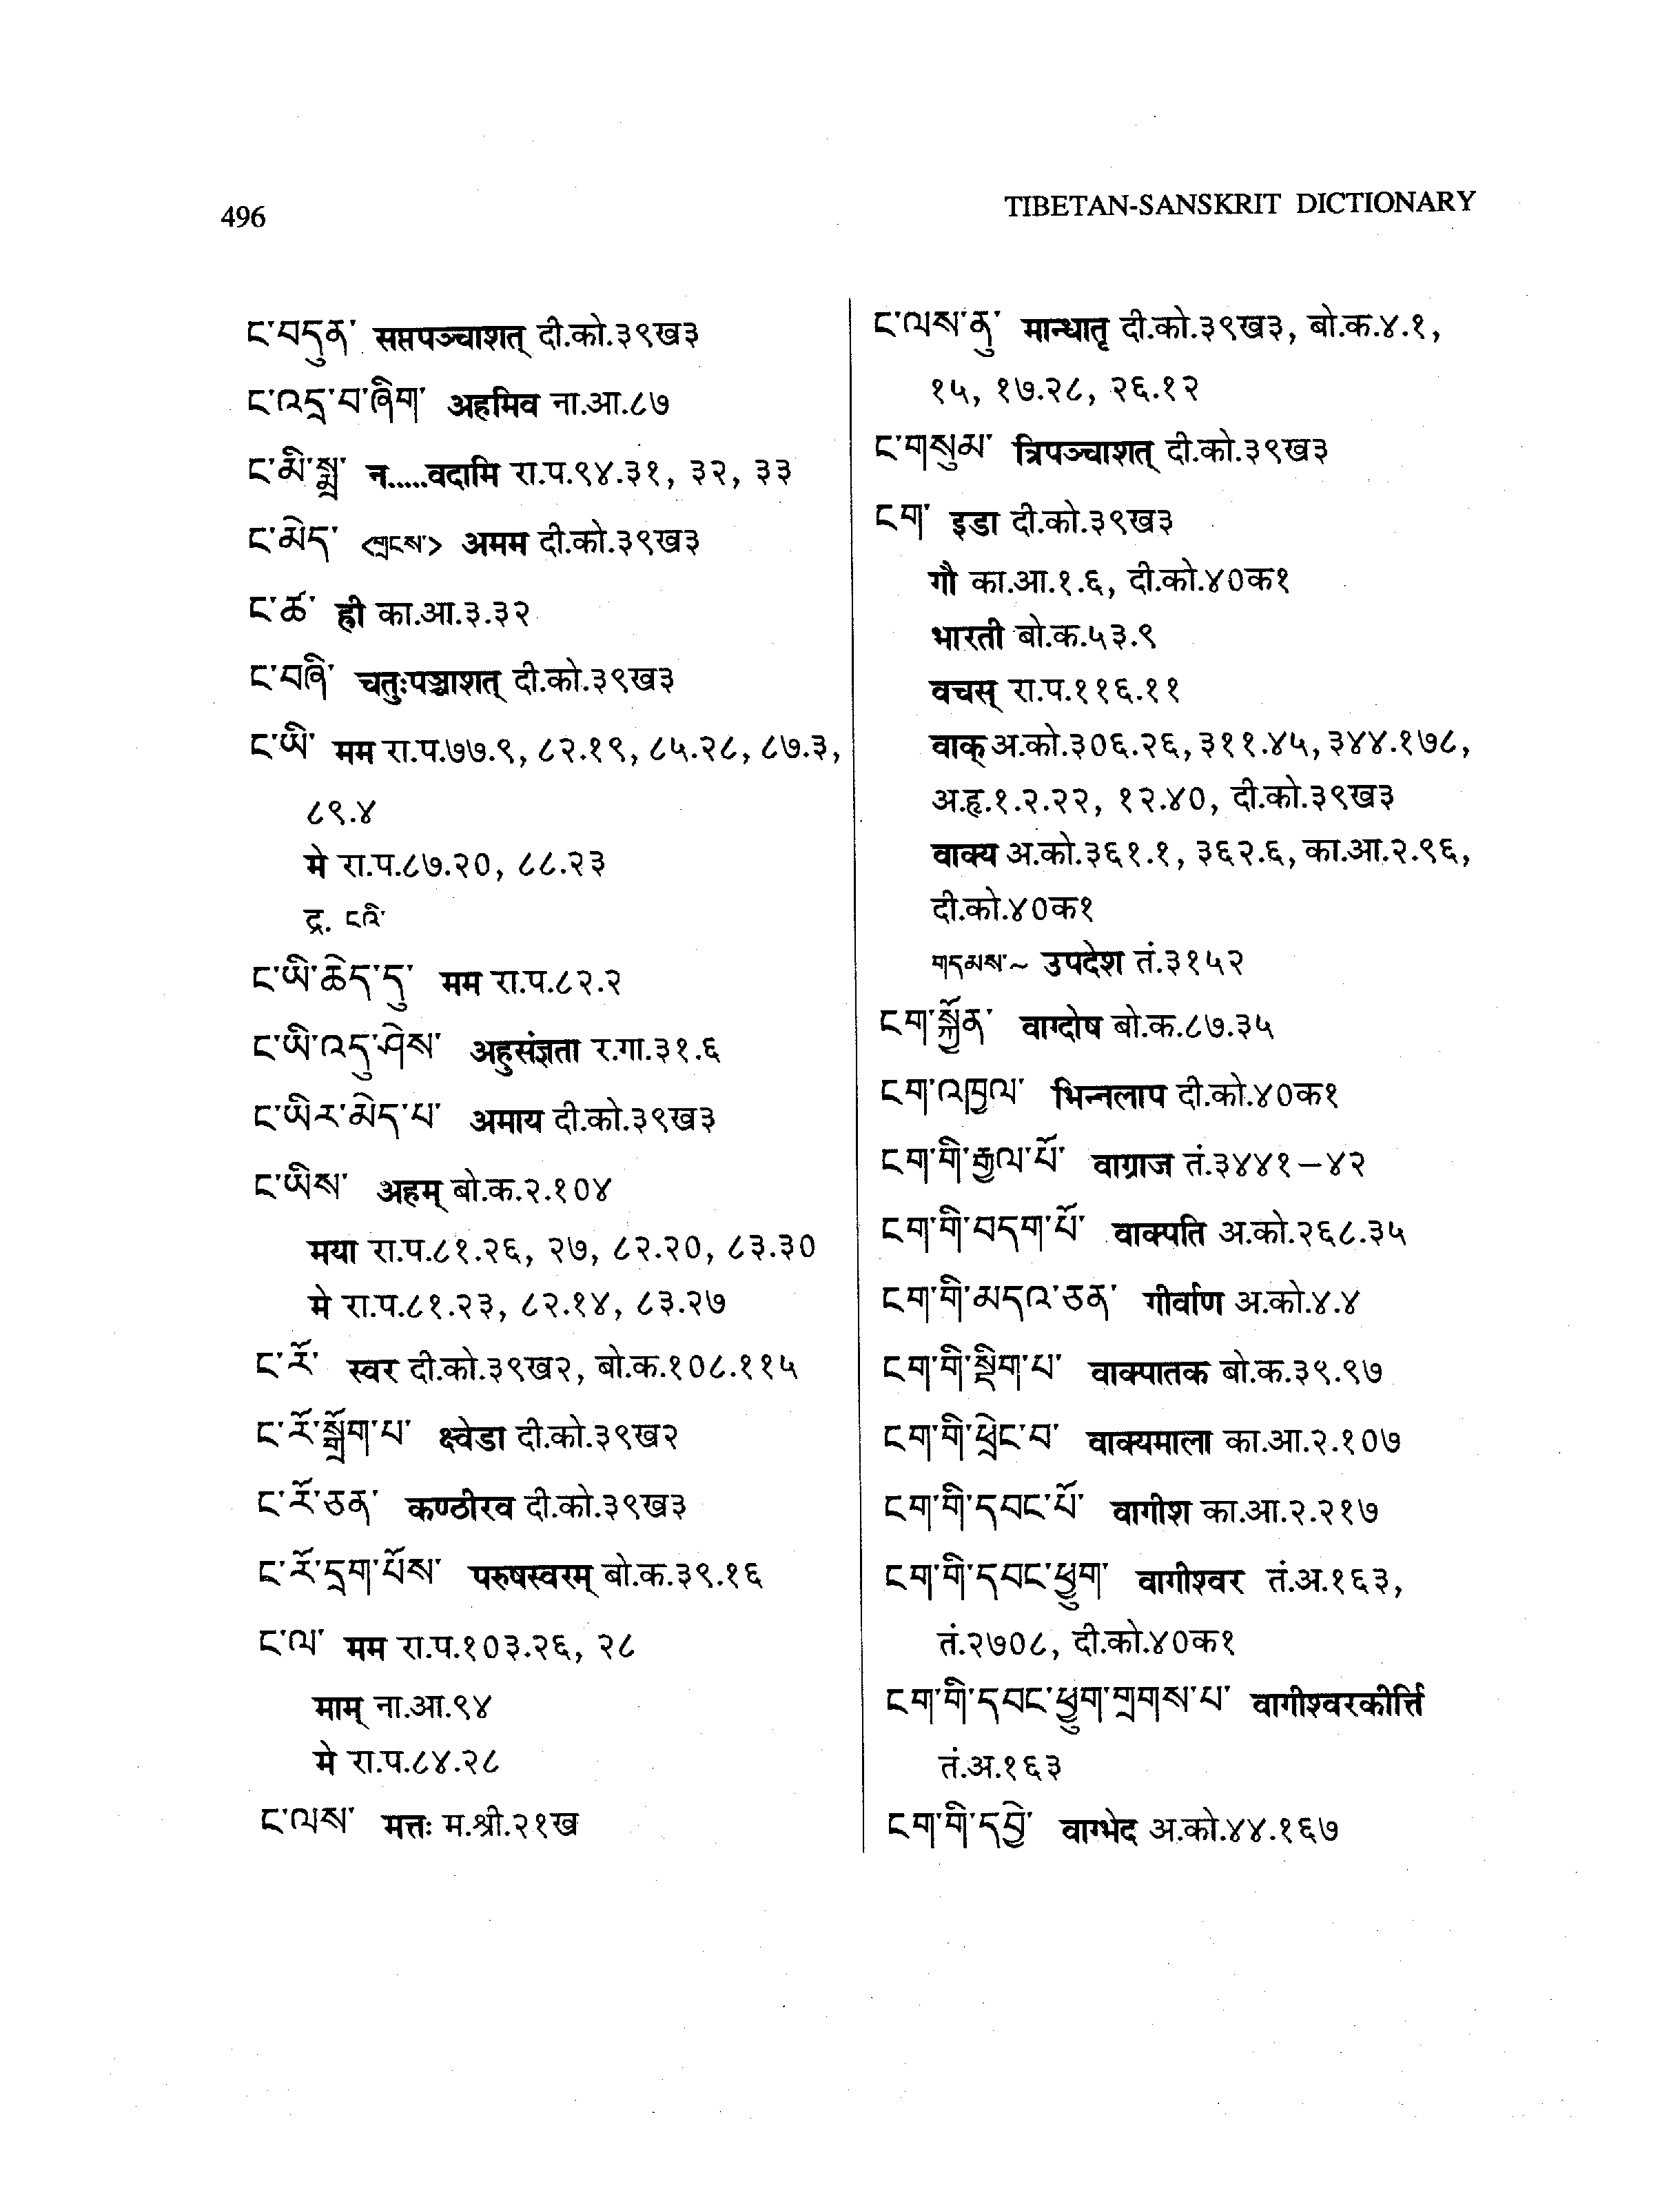 496
TIBETAN-SANSKRIT DICTIONARY
ང་བདུན་ सप्तपञ्चाशत् दी.को.३९ख३
ང་འདྲ་བ་ཞིག་ अहमिव ना.आ.८७
ང་མི་སྨྲ་ न.....वदामि रा.प.९४.३१, ३२, ३३
ང་མེད་ <གྲངས་> अमम दी.को.३९ख३
ང་ཚ་ ह्री का.आ.३.३२
ང་བཞི་ चतुःपञ्चाशत् दी.को.३९ख३
ང་ཡི་ मम रा.प.७७.९, ८२.१९, ८५.२८, ८७.३,
८९.४
मे रा.प.८७.२०, ८८.२३
द्र. ངའི་
ང་ཡི་ཆེད་དུ་ मम रा.प.८२.२
ང་ཡི་འདུ་ཤེས་ अहुसंज्ञता र.गा.३१.६
ང་ཡིར་མེད་པ་ अमाय दी.को.३९ख३
ང་ཡིས་ अहम् बो.क.२.१०४
मया रा.प.८१.२६, २७, ८२.२०, ८३.३०
मे रा.प.८१.२३, ८२.१४, ८३.२७
ང་རོ་ स्वर दी.को.३९ख२, बो.क.१०८.११५
ང་རོ་སྒྲོག་པ་ क्ष्वेडा दी.को.३९ख२
ང་རོ་ཅན་ कण्ठीरव दी.को.३९ख३
ང་རོ་དྲག་པོས་ परुषस्वरम् बो.क.३९.१६
ང་ལ་ मम रा.प.१०३.२६, २८
माम् ना.आ.९४
मे रा.प.८४.२८
ང་ལས་ मत्तः म.श्री.२१ख
ང་ལས་ནུ་ मान्धातृ दी.को.३९ख३, बो.क.४.१,
१५, १७.२८, २६.१२
ང་གསུམ་ त्रिपञ्चाशत् दी.को.३९ख३
ངག་ इडा दी.को.३९ख३
गौ का.आ.१.६, दी.को.४०क१
भारती बो.क.५३.९
वचस् रा.प.११६.११
वाक् अ.को.३०६.२६, ३११.४५, ३४४.१७८,
अ.हृ.१.२.२२, १२.४०, दी.को.३९ख३
वाक्य अ.को.३६१.१, ३६२.६, का.आ.२.९६,
दी.को.४०क१
གདམས་~ उपदेश तं.३१५२
ངག་སྐྱོན་ वाग्दोष बो.क.८७.३५
ངག་འཁྱལ་ भिन्नलाप दी.को.४०क१
ངག་གི་རྒྱལ་པོ་ वाग्राज तं.३४४१–४२
ངག་གི་བདག་པོ་ वाक्पति अ.को.२६८.३५
ངག་གི་མདའ་ཅན་ गीर्वाण अ.को.४.४
ངག་གི་སྡིག་པ་ वाक्पातक बो.क.३९.९७
ངག་གི་ཕྲེང་བ་ वाक्यमाला का.आ.२.१०७
ངག་གི་དབང་པོ་ वागीश का.आ.२.२१७
ངག་གི་དབང་ཕྱུག་ वागीश्वर तं.अ.१६३,
तं.२७०८, दी.को.४०क१
ངག་གི་དབང་ཕྱུག་གྲགས་པ་ वागीश्वरकीर्त्ति
तं.अ.१६३
ངག་གི་དབྱེ་ वाग्भेद अ.को.४४.१६७